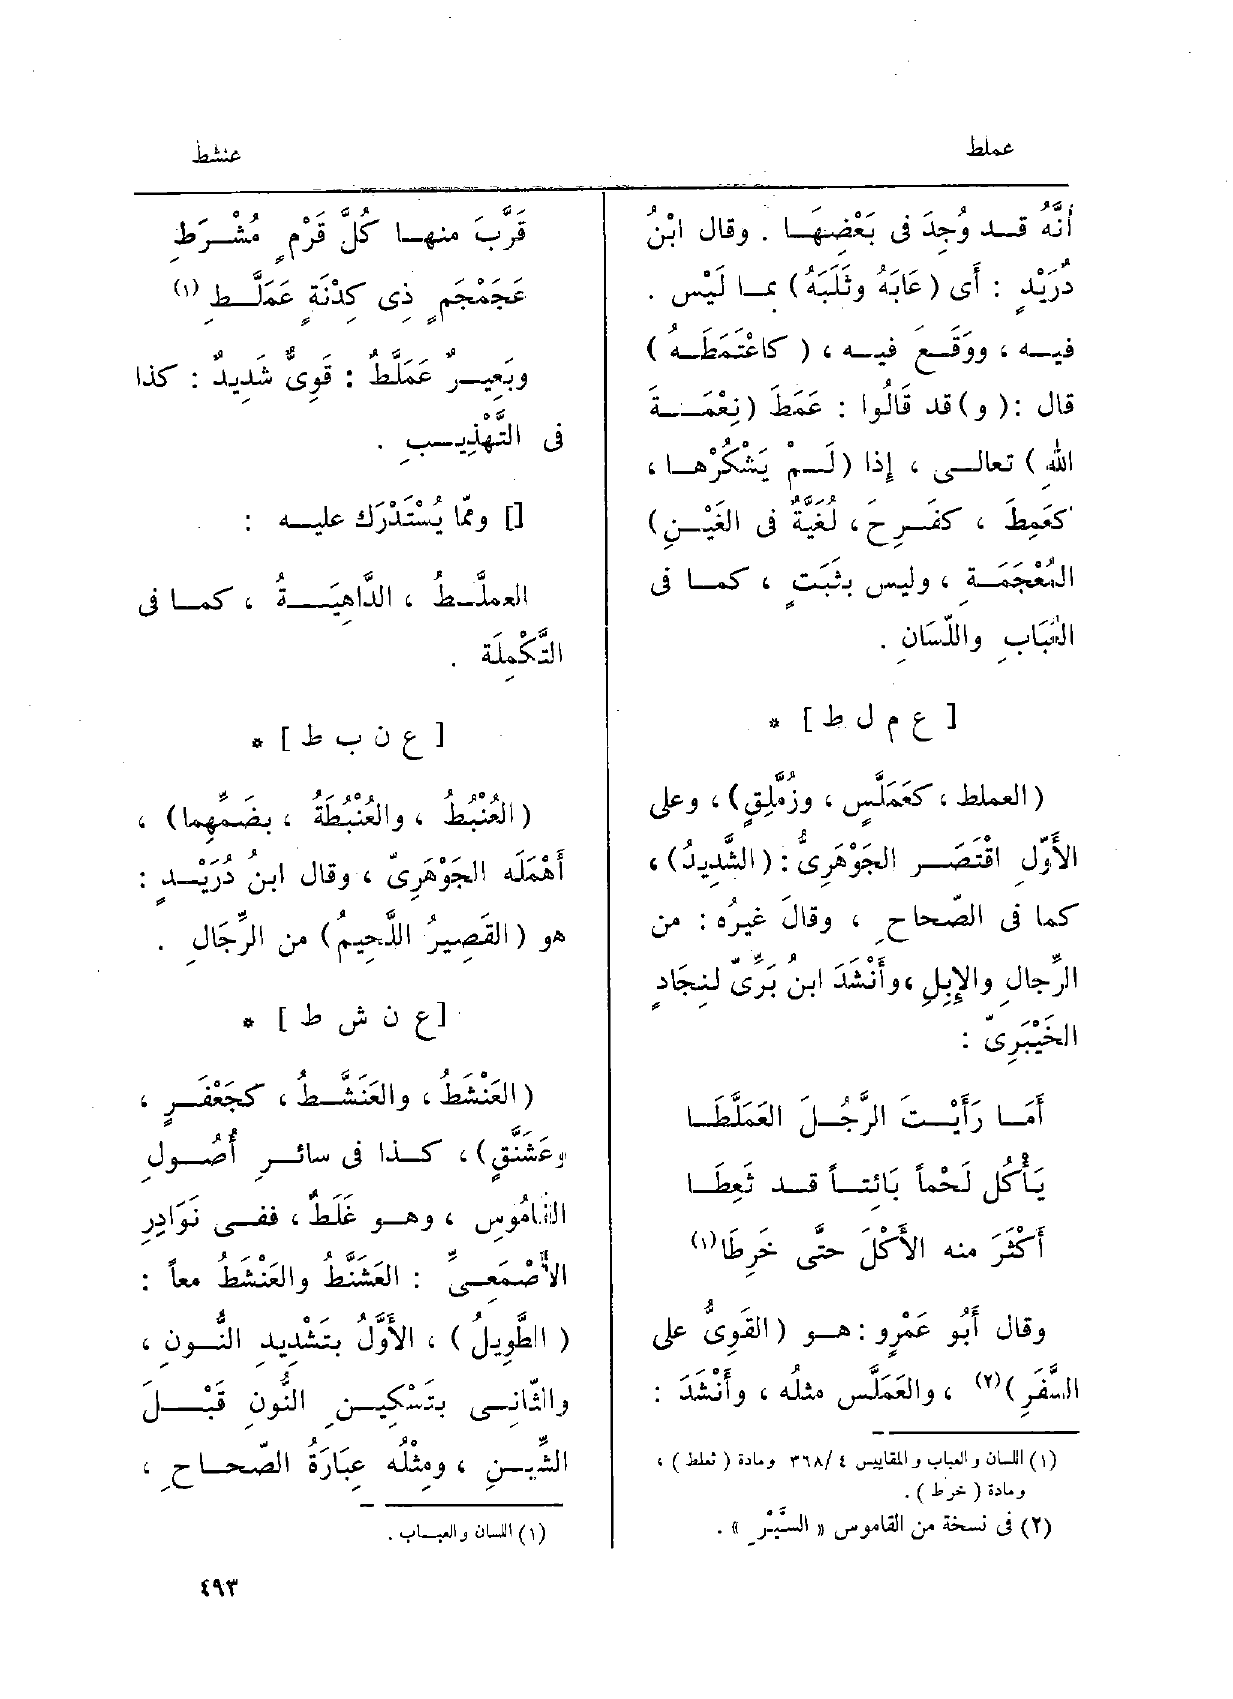 عملط
عنشط
أَنَّهُ قد وُجِدَ فى بَعْضِهَا . وقال ابْنُ
دُرَيْدٍ : أَى (عَابَهُ وثَلَبَهُ) بما لَيْس .
فيه ، ووَقَع فيه ، ( كاعْتَمَطَهُ )
قال :(و)قد قَالُوا : عَمَطَ (نِعْمَةَ
اللهِ) تعالى ، إذا (لَمْ يَشْكُرْها ،
كعَمِطَ ، كفَرِحَ ، لُغَيَّةٌ فى الغَيْنِ)
المُعْجَمَةِ ، وليس بثَبَتٍ ، كما فى
العُبَابِ واللِّسَانِ .
[ ع م ل ط ] *
(العملط ، كعَمَلَّسٍ ، وزُمَّلِقٍ) ، وعلى
الأَوّلِ اقْتَصَر الجَوْهَرِىُّ : (الشَّدِيدُ) ،
كما فى الصّحاحِ ، وقالَ غيرُه : من
الرِّجالِ والإِبِلِ ، وأَنْشَدَ ابنُ بَرِّىّ لنِجَادٍ
الخَيْبَرِىّ :
أَمَا رَأَيْتَ الرَّجُلَ العَمَلَّطَا
يَأْكُلُ لَحْماً بَائِتاً قد ثَعِطَا
أَكْثَرَ منه الأَكْلَ حتَّى خَرِطَا(١)
وقال أَبُو عَمْرٍو : هو (القَوِىُّ على
السَّفَرِ)(٢) ، والعَمَلَّس مثلُه ، وأَنْشَدَ :
(١) اللسان والعباب والمقاييس ٤ /٣٦٨ ومادة ( ثعط ) ،
ومادة ( خرط ) .
(٢) فى نسخة من القاموس « السَّيْرِ » .
قَرَّبَ منها كُلَّ قَرْمٍ مُشْرَطِ
عَجَمْجَمٍ ذِى كِدْنَةٍ عَمَلَّطِ (١)
وبَعِيرٌ عَمَلَّطٌ : قَوِىٌّ شَدِيدٌ : كذا
فى التَّهْذِيبِ .
[] وممّا يُسْتَدْرَك عليه :
العملَّطُ ، الدَّاهِيَةُ ، كما فى
التَّكْمِلَة .
[ ع ن ب ط ] *
(العُنْبُطُ ، والعُنْبُطَةُ ، بضَمِّهِما) ،
أَهْمَلَه الجَوْهَرِىّ ، وقال ابنُ دُرَيْدٍ :
هو (القَصِيرُ اللَّحِيمُ) من الرِّجَالِ .
[ع ن ش ط ] *
(العَنْشَطُ ، والعَنَشَّطُ ، كجَعْفَرٍ ،
وعَشَنَّقٍ) ، كذا فى سائرِ أُصُولِ
القَامُوسِ ، وهو غَلَطٌ ، ففى نَوَادِرِ
الأَصْمَعِىِّ : العَشَنَّطُ والعَنْشَطُ معاً :
( الطَّوِيلُ ) ، الأَوَّلُ بتَشْدِيد النُّونِ ،
والثّانِى بتَسْكِينِ النُّونِ قَبْلَ
الشِّينِ ، ومِثْلُه عِبَارَةُ الصّحاحِ ،
(١) اللسان والعباب .
٤٩٣